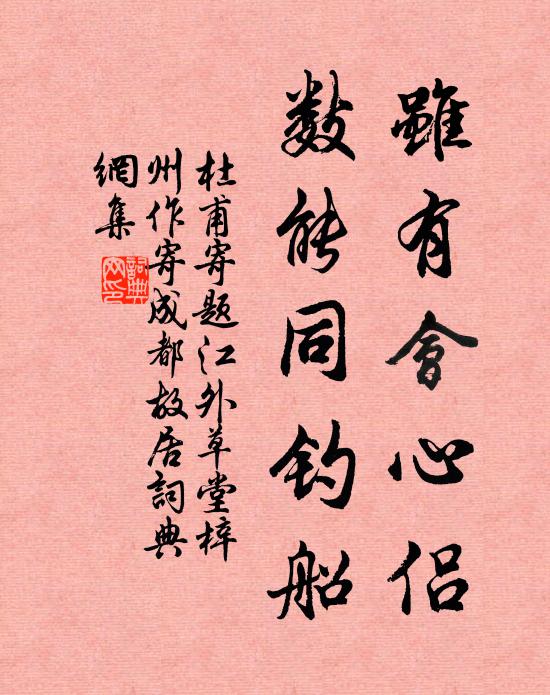 雖有會心侶
數能同釣船
杜甫寄題江外草堂梓
州作寄成都故居詞典
網集
詞典網印